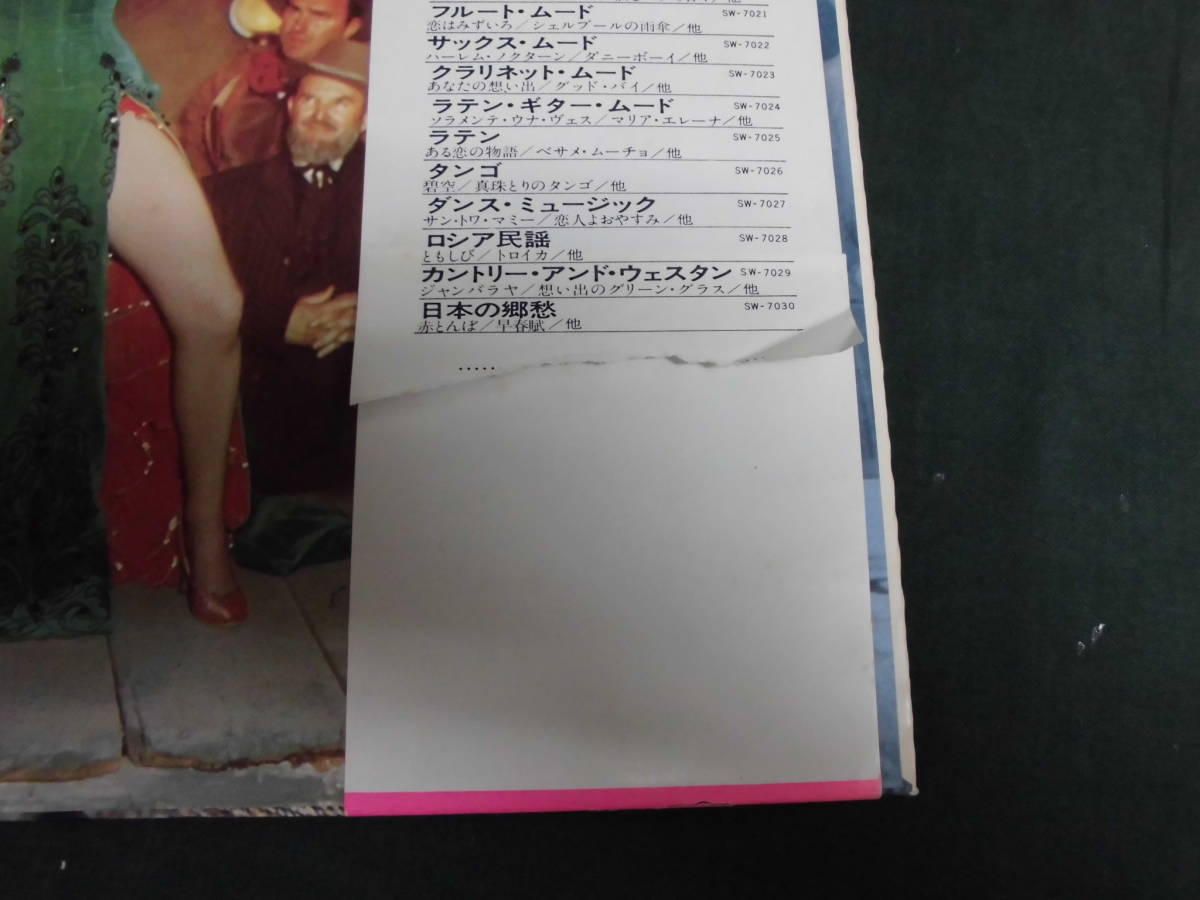 フルート・ムード SW-7021
恋はみずいろ/シェルブールの雨傘/他
サックス・ムード SW-7022
ハーレム・ノクターン/ダニーボーイ/他
クラリネット・ムード SW-7023
あなたの想い出/グッド・バイ/他
ラテン・ギター・ムード SW-7024
ソラメンテ・ウナ・ヴェス/マリア・エレーナ/他
ラテン SW-7025
ある恋の物語/ベサメ・ムーチョ/他
タンゴ SW-7026
碧空/真珠とりのタンゴ/他
ダンス・ミュージック SW-7027
サン・トワ・マミー/恋人よおやすみ/他
ロシア民謡 SW-7028
ともしび/トロイカ/他
カントリー・アンド・ウェスタン SW-7029
ジャンバラヤ/想い出のグリーン・グラス/他
日本の郷愁 SW-7030
赤とんぼ/早春賦/他
.....